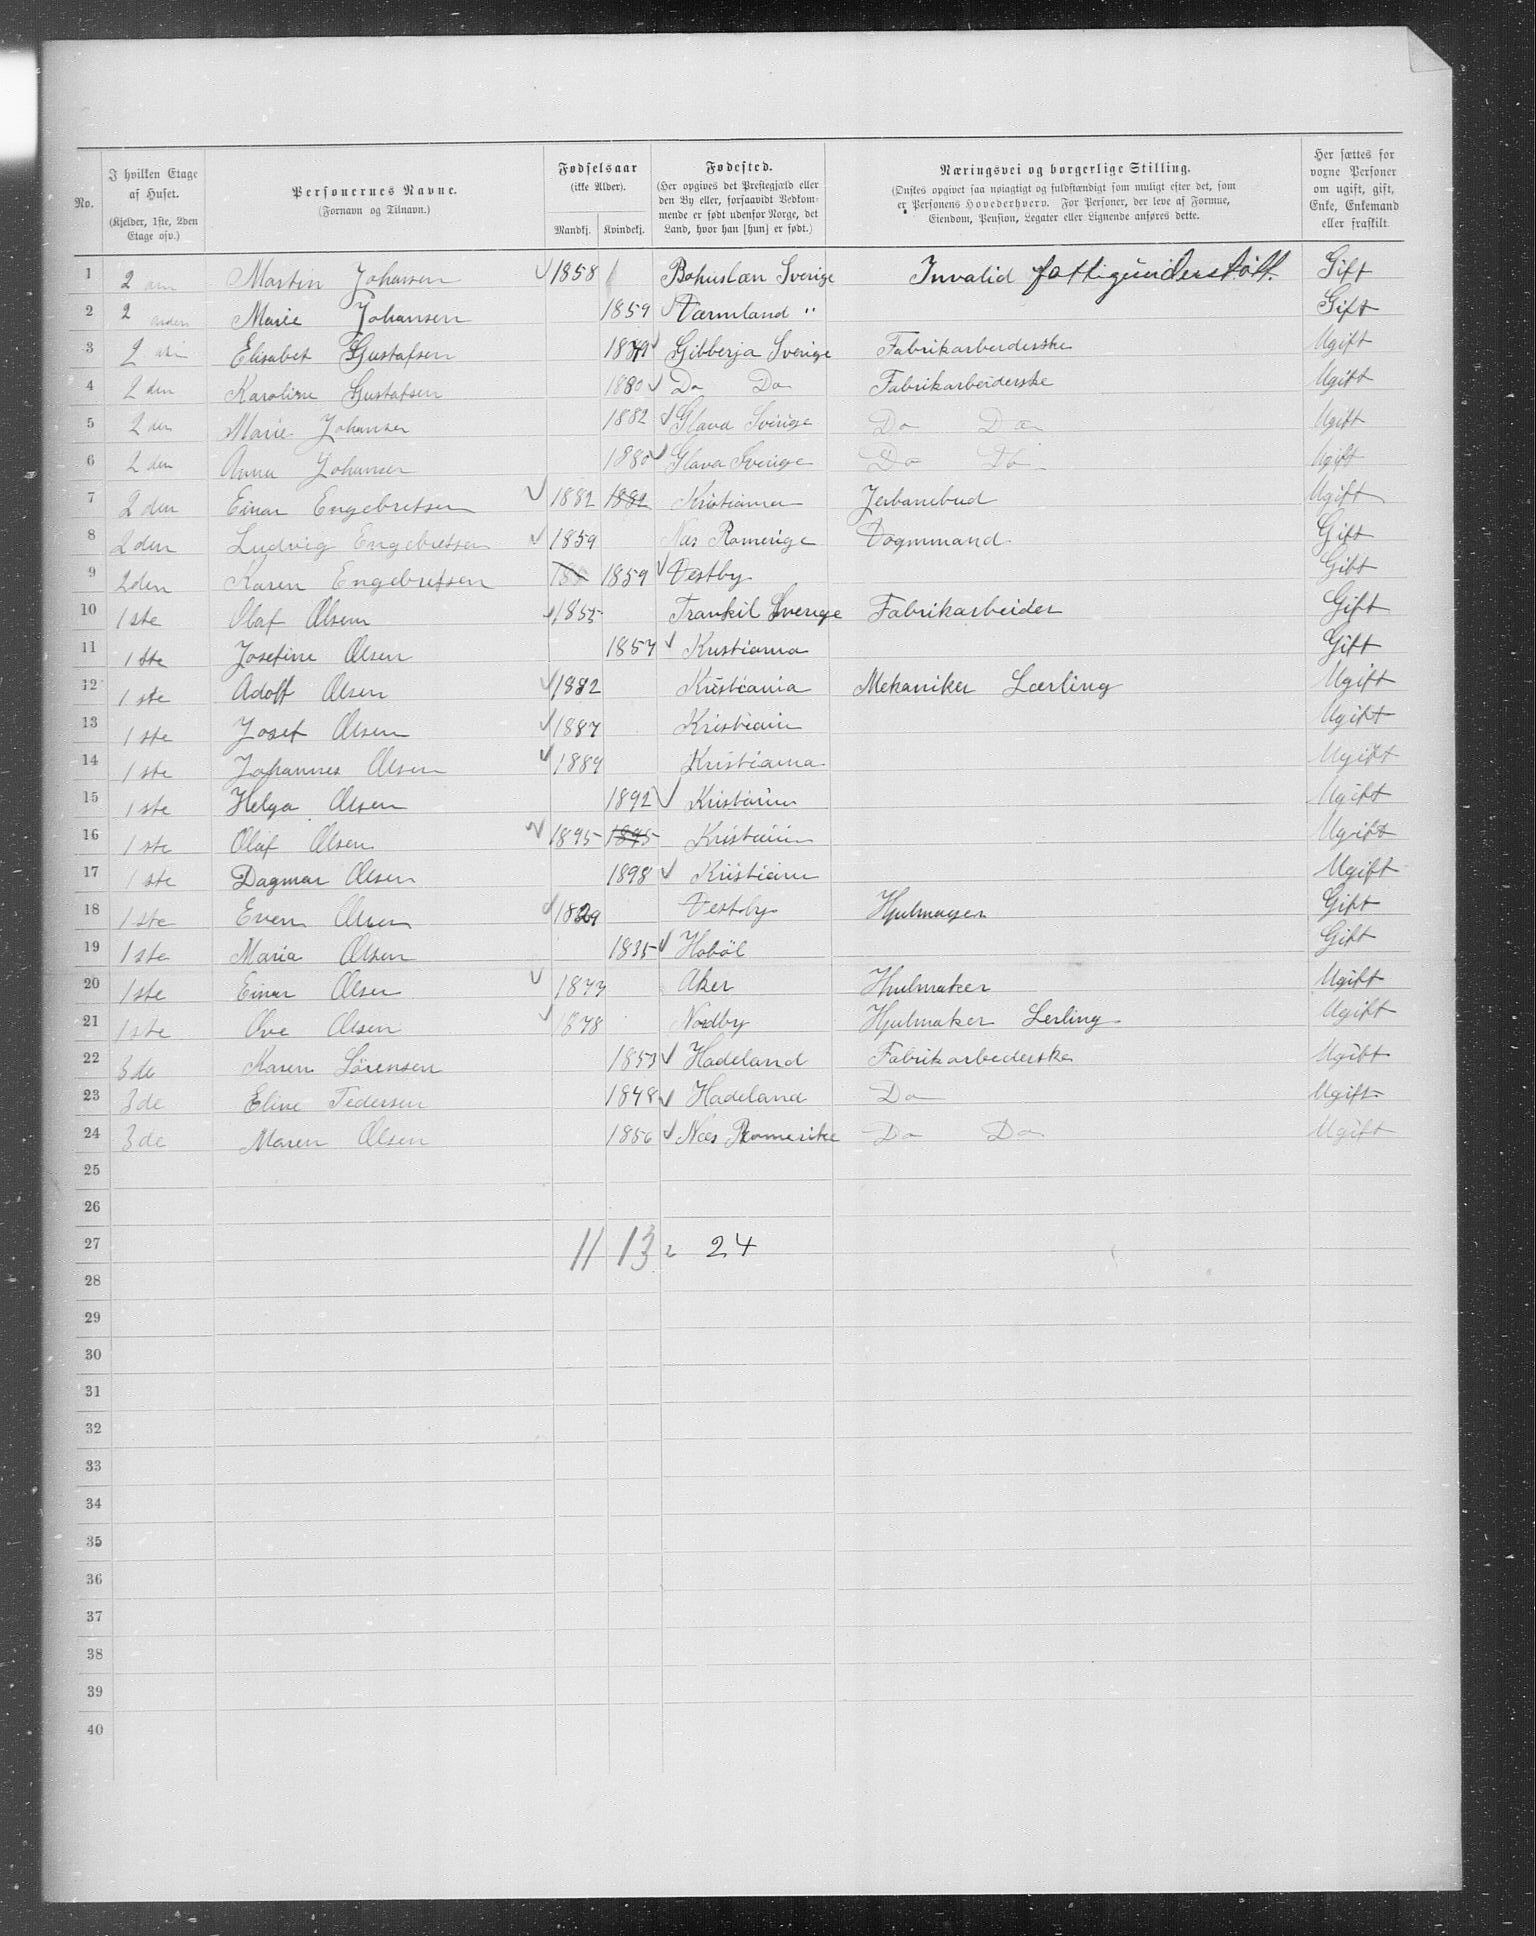 No.
I hvilken Etage af Huset. (Kjelder, 1ste, 2den Etage osv.)
Personernes Navne. (Fornavn og Tilnavn.)
Fødselsaar (ikke Alder). Mandkj. Kvindekj.
Fødested. (Her opgives det Prestegjæld eller den By eller, forsaavidt Vedkommende er født udenfor Norge, det Land, hvor han [hun] er født.)
Næringsvei og borgerlige Stilling. (Ønskes opgivet saa nøiagtigt og fuldstændigt som muligt efter det, som er Personens Hovederhverv. For Personer, der leve af Formue, Eiendom, Pension, Legater eller Lignende anføres dette.)
Her sættes for voxne Personer om ugift, gift, Enke, Enkemand eller fraskilt.
1 2 Martin Johansen 1858 Bohuslæn Sverige Invalid fattigunderstøtt. Gift
2 2 anden Marie Johansen 1859 Værmland " Gift
3 2 Elisabet Gustafsen Gibberja Sverige Fabrikarbeiderske Ugift
4 2 den Karoline Gustafsen 1880 Do Do Fabrikarbeiderske Ugift
5 2 den Marie Johansen 1882 Glava Sverige Do Do Ugift
6 2 den Anna Johansen 1880 Glava Sverige Do Do Ugift
7 2 den Einar Engebretsen 1882 1882 Kristiania Jerbanebud Ugift
8 2 den Ludvig Engebretsen 1859 Næs Romerige Vognmand Gift
9 2den Karen Engebretsen 1859 Vestby Gift
10 1 ste Olaf Olsen 1855 Trankil Sverige Fabrikarbeider Gift
11 1 ste Josefine Olsen 1857 Kristiania Gift
12 1 ste Adolf Olsen 1882 Kristiania Mekaniker Lærling Ugift
13 1 ste Josef Olsen 1887 Kristiania Ugift
14 1 ste Johannes Olsen 1889 Kristiania Ugift
15 1 ste Helga Olsen 1892 Kristiania Ugift
16 1 ste Olaf Olsen 1895 1895 Kristiania Ugift
17 1 ste Dagmar Olsen 1898 Kristiania Ugift
18 1 ste Even Olsen 1829 Vestby Hjulmager Gift
19 1 ste Maria Olsen 1835 Hobøl Gift
20 1ste Einar Olsen 1877 Aker Hjulmaker Ugift
21 1 ste Ove Olsen 1878 Nordby Hjulmaker Lerling Ugift
22 3 de Karen Sørensen 1853 Hadeland Fabrikarbederske Ugift
23 3 de Eline Pedersen 1848 Hadeland Do Ugift
24 3 de Maren Olsen 1856 Næs Romerike Do Do Ugift
25
26
27 11 13 = 24
28
29
30
31
32
33
34
35
36
37
38
39
40